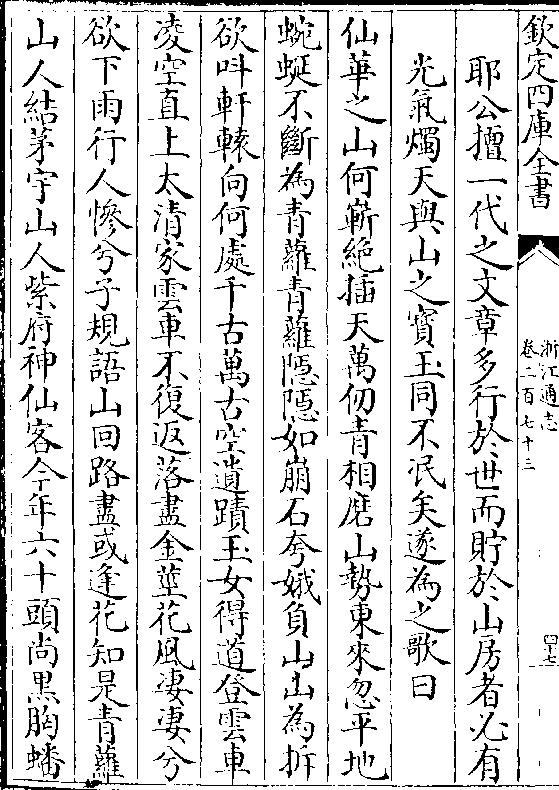 欽定四庫全書
浙江通志
卷二百七十三
四十七
耶公擅一代之文章多行於世而貯於山房者必有
光氣燭天與山之寳玉同不泯矣遂為之歌曰
仙華之山何嶄絶插天萬仞青相磨山勢東來忽平地
蜿蜒不斷為青蘿青蘿隠隠如崩石夸娥負山山為拆
欲呌軒轅向何處千古萬古空遺蹟玉女得道登雲車
凌空直上太清家雲車不復返落盡金莖花風凄凄兮
欲下雨行人慘兮子規語山回路盡或逢花知是青蘿
山人結茅宇山人紫府神仙客今年六十頭尚黒胸蟠